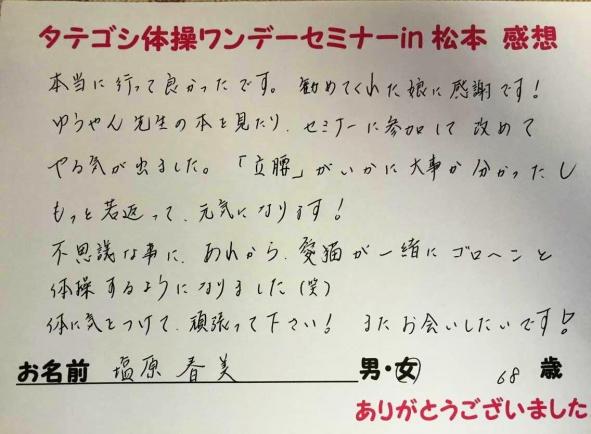 タテゴシ体操ワンデーセミナーin 松本 感想
本当に行って良かったです。勧めてくれた娘に感謝です!
ゆうやん先生の本を見たり、セミナーに参加して改めて
やる気が出ました。「立腰」がいかに大事か分かったし
もっと若返って、元気になります!
不思議な事に、あれから、愛猫が一緒にゴローンと
体操するようになりました(笑)
体に気をつけて、頑張って下さい! またお会いしたいです!
お名前 塩原 春美 男・女 68 歳
ありがとうございました